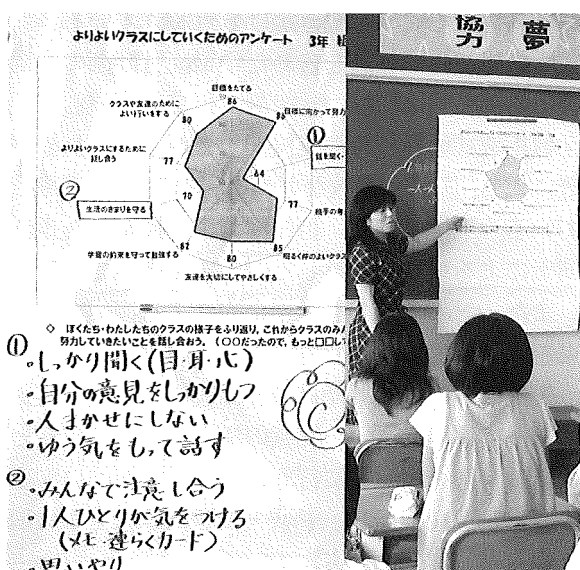 よりよいクラスにしていくためのアンケート 3年 組
目標をたてる
86
86
目標に向かって努力
①
話を聞く・
64
77
相手の考
85
明るく仲のよいクラス
80
友達を大切にしてやさしくする
82
学習の約束を守って勉強する
70
②
生活のきまりを守る
77
よりよいクラスにするために
話し合う
80
クラスや友達のために
よい行いをする
◇ ぼくたち・わたしたちのクラスの様子をふり返り、これからクラスのみん
努力していきたいことを話し合おう。(○○だったので、もっと□□して
①
・しっかり聞く(目・耳・心)
・自分の意見をしっかりもつ
・人まかせにしない
・ゆう気をもって話す
②
・みんなで注意し合う
・1人ひとりが気をつける
(メモ・連らくカード)
・思いやり
協力 夢